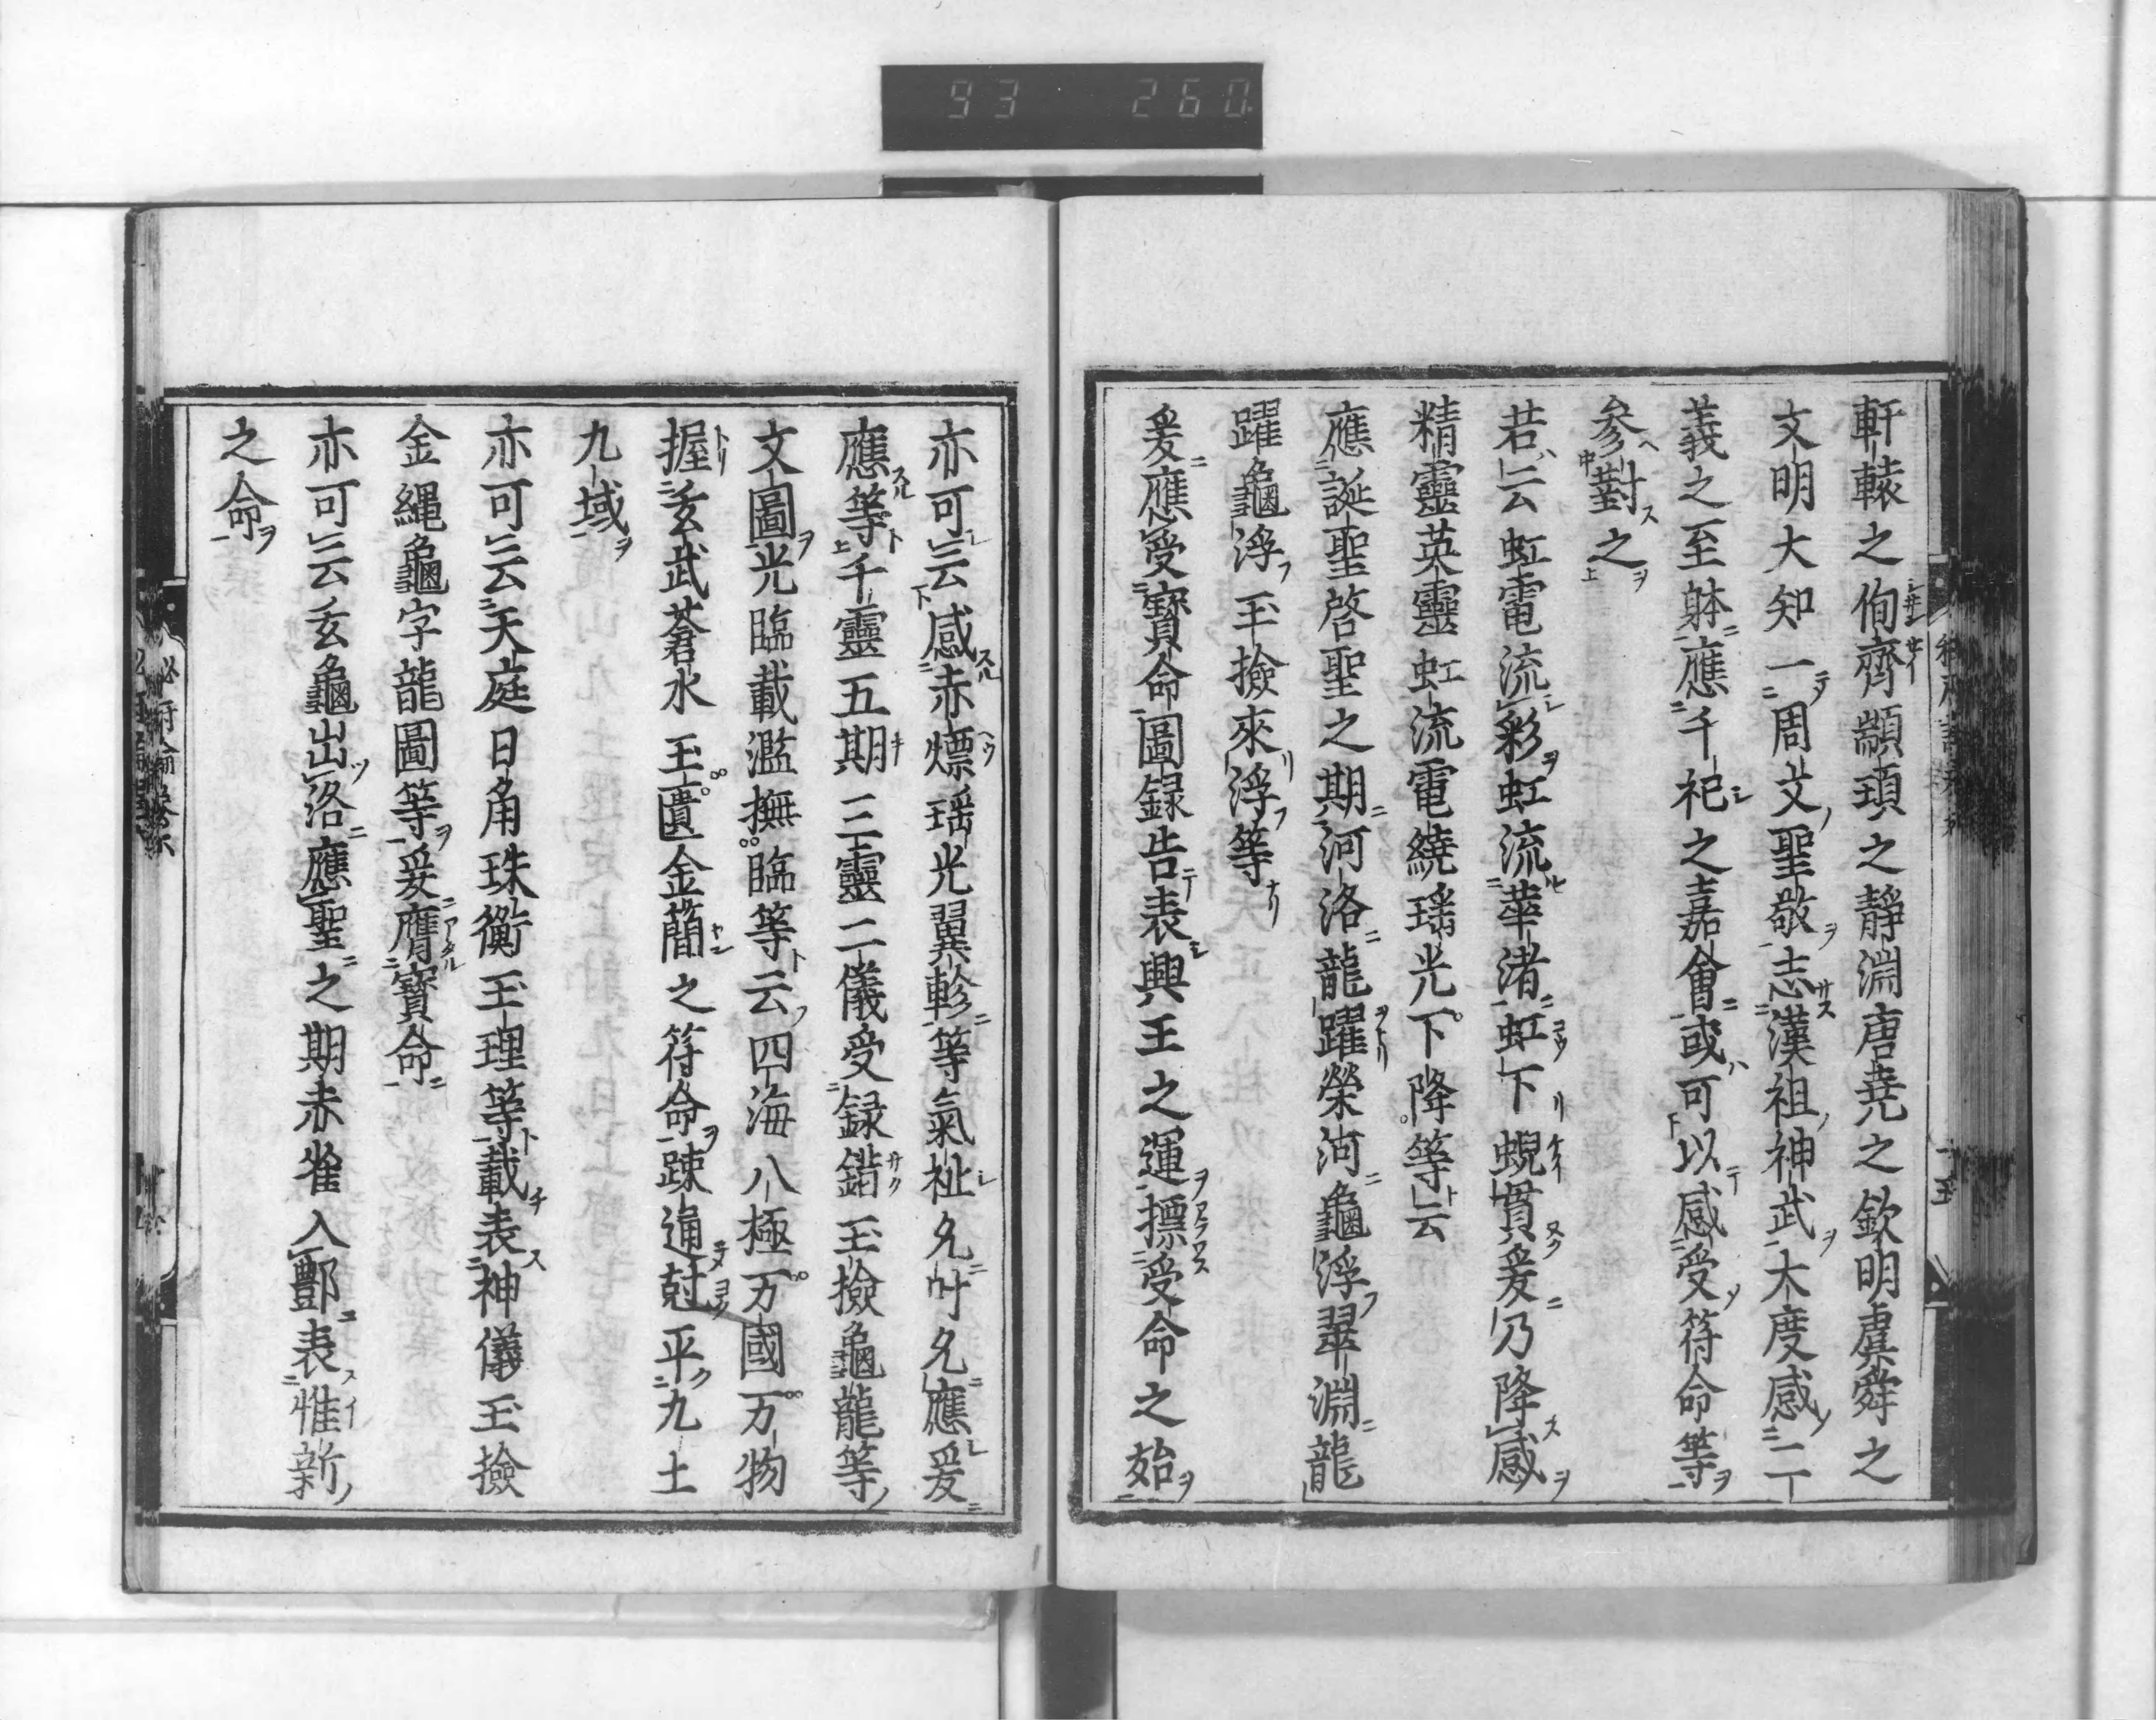 93 260
軒轅之徇齊顓頊之靜淵唐堯之欽明虞舜之
文明大知一周文聖敬志漢祖神武大度感二丁
義之至躰應千祀之嘉會或可以感受符命等
參對之
若云虹電流彩虹流華渚虹下蜺貫爰乃降感
精靈英靈虹流電繞瑶光下降等云
應誕聖啓聖之期河洛龍躍榮河龜浮翠淵龍
躍龜浮玉撿來浮等
爰應受寶命圖録告表興王之運摽受命之始
亦可云感赤熛瑶光翼軫等氣祉允叶允應爰
應等千靈五期三靈二儀受録錯玉撿龜龍等
文圖光臨載濫撫臨等云四海八極万國万物
握玄武蒼水玉匱金簡之符命疎通尅平九土
九域
亦可云天庭日角珠衡玉理等載表神儀玉撿
金繩龜字龍圖等爰膺寶命
亦可云玄龜出洛應聖之期赤雀入酆表惟新
之命